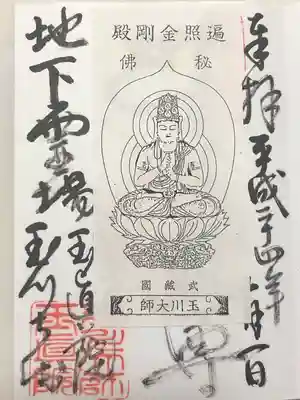 奉拝 平成二十四年
遍照金剛殿
秘佛
武蔵國
玉川大師
地下霊場 玉真院 玉川大師